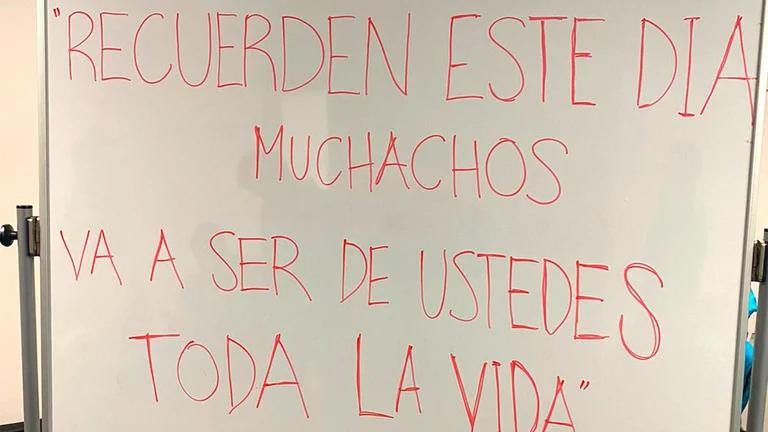 "RECUERDEN ESTE DIA
MUCHACHOS
VA A SER DE USTEDES
TODA LA VIDA"